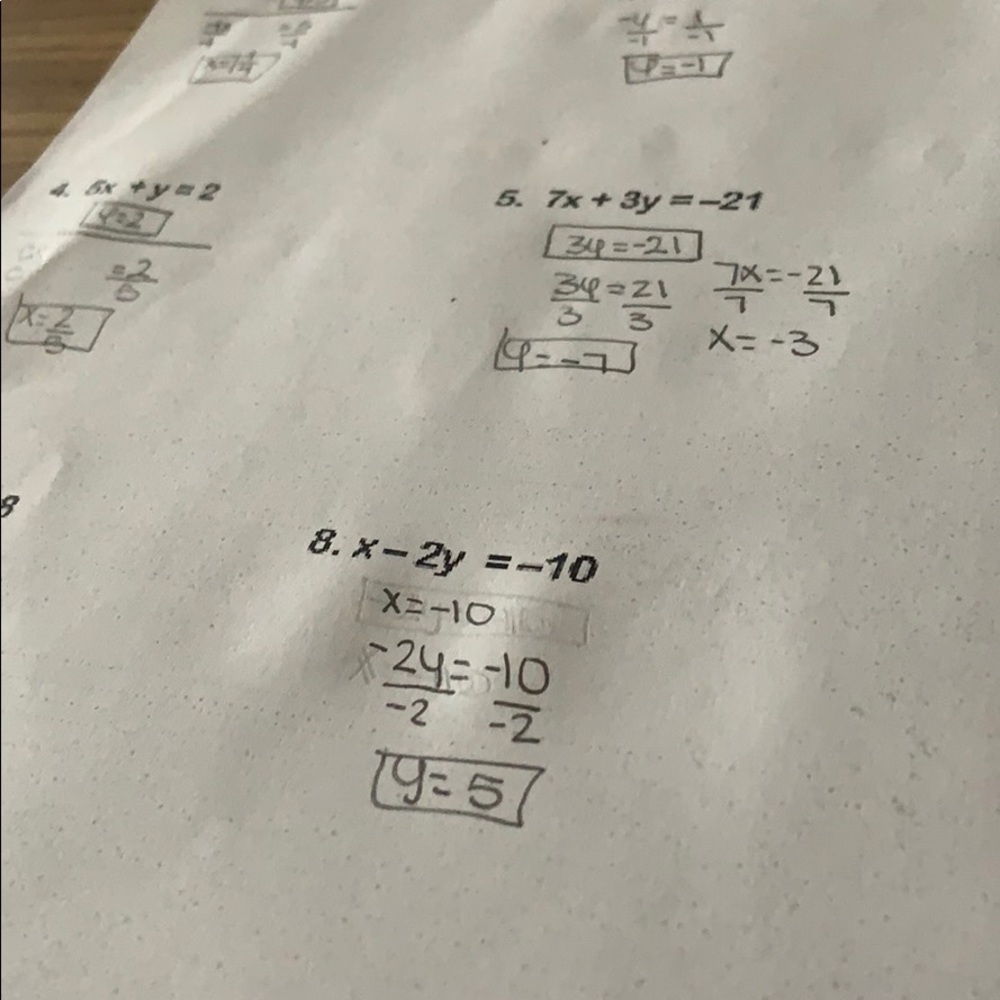 -y/-1 = 1/-1
y = -1
4. 5x + y = 2
y=2
= 2/5
x = 2/5
5. 7x + 3y = -21
3y = -21
3y/3 = 21/3
y = -7
7x/7 = -21/7
x = -3
8
8. x - 2y = -10
x = -10
-2y/-2 = -10/-2
y = 5